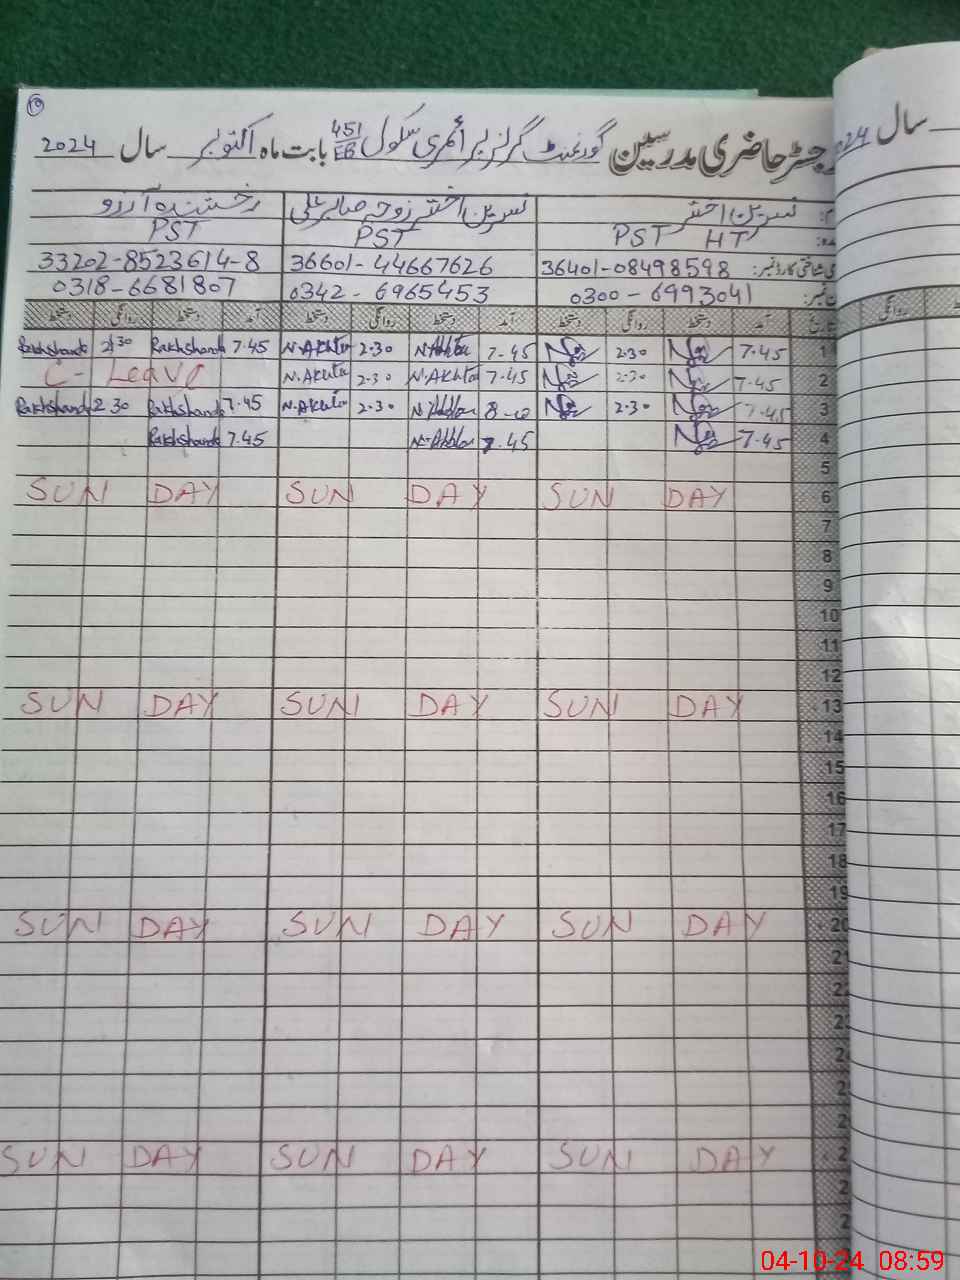 رجسٹر حاضری مدرسین گورنمنٹ گرلز پرائمری سکول 451/EB بابت ماہ اکتوبر سال 2024
سال 2024
نسرین اختر نسرین اختر زوجہ صابر علی رخشندہ آرزو
PST HT PST PST
36401-08498598 36601-44667626 33202-8523614-8
0300-6993041 0342-6965453 0318-6681807
آمد دستخط روانگی دستخط آمد دستخط روانگی دستخط آمد دستخط روانگی دستخط
1 7.45 2.30 7.45 N.Akhtar 2.30 N.Akhtar 7.45 Rakhshanda 2.30 Rakhshanda
2 7.45 2.30 7.45 N.Akhtar 2.30 N.Akhtar C-Leave
3 7.45 2.30 8-0 N.Akhtar 2.30 N.Akhtar 7.45 Rakhshanda 2.30 Rakhshanda
4 7.45 7.45 N.Akhtar 7.45 Rakhshanda
5
6 SUN DAY SUN DAY SUN DAY
7
8
9
10
11
12
13 SUN DAY SUN DAY SUN DAY
14
15
16
17
18
19
20 SUN DAY SUN DAY SUN DAY
21
22
23
SUN DAY SUN DAY SUN DAY
04-10-24 08:59